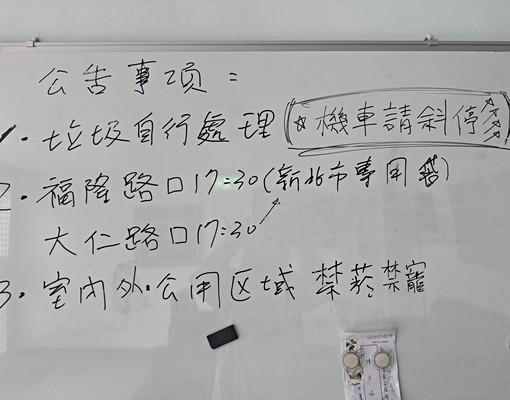 公告事項：
1. 垃圾自行處理 ☆機車請斜停
2. 福隆路口17:30(新北市專用袋)
大仁路口17:30
3. 室內外.公用区域 禁菸禁寵